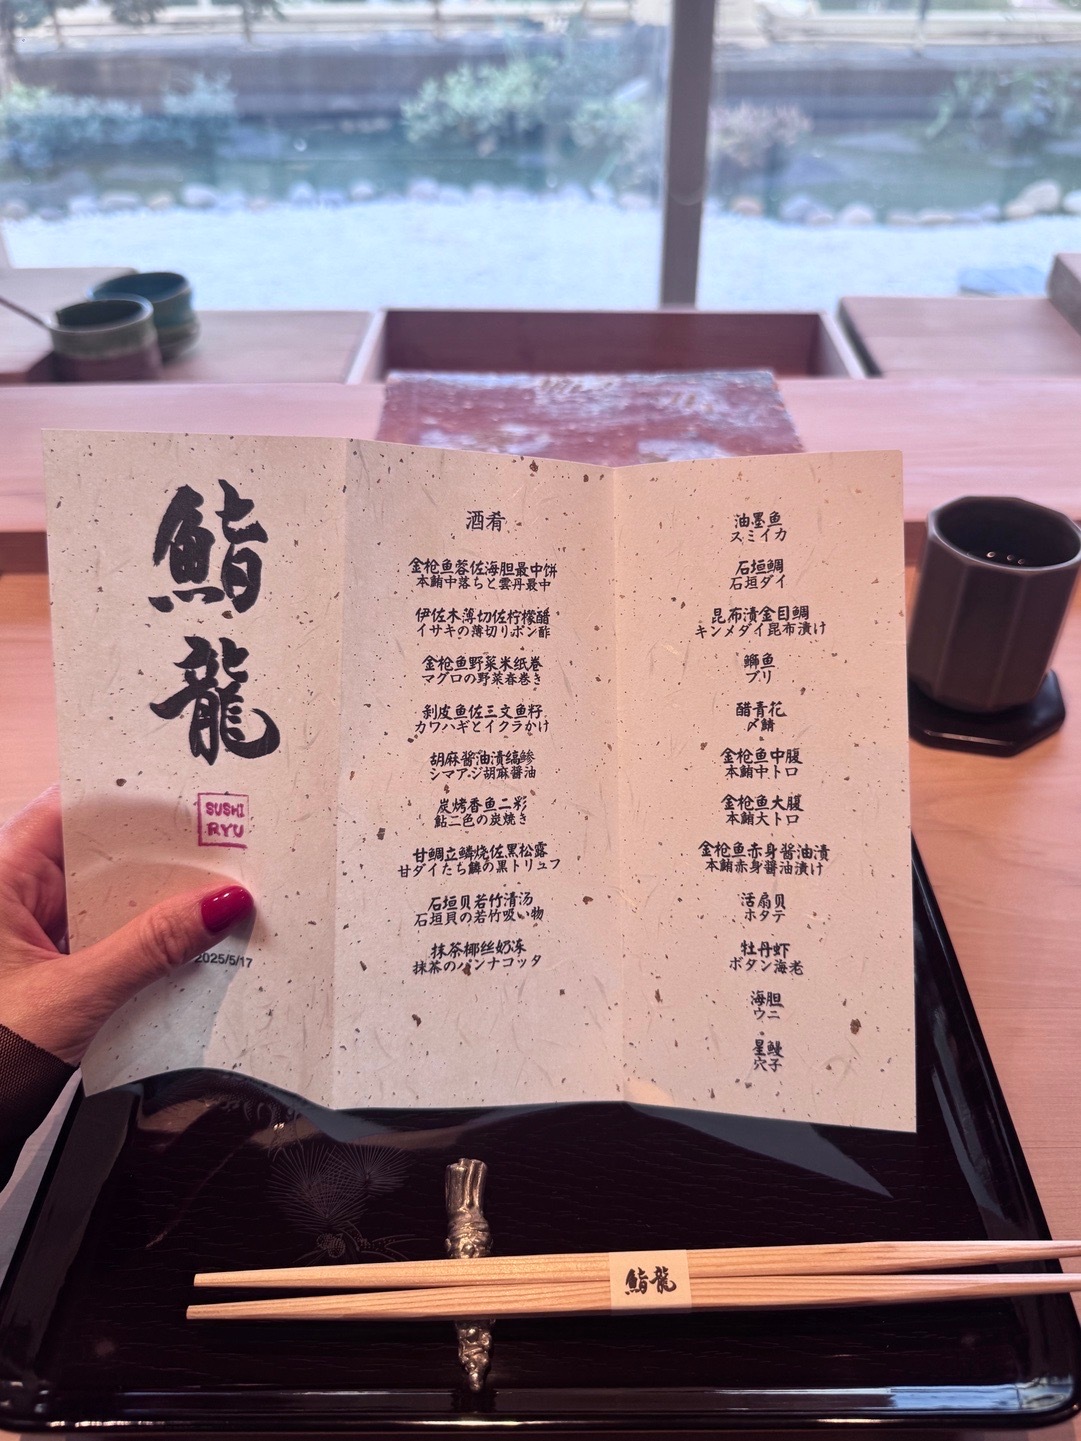 鮨
龍
SUSHI
RYU
2025/5/17
酒肴
金枪鱼蓉佐海胆最中饼
本鮪中落ちと雲丹最中
伊佐木薄切佐柠檬醋
イサキの薄切リポン酢
金枪鱼野菜米纸卷
マグロの野菜春巻き
剥皮鱼佐三文鱼籽
カワハギとイクラかけ
胡麻酱油漬縞鲹
シマアジ胡麻醤油
炭烤香鱼二彩
鮎二色の炭焼き
甘鲷立鳞烧佐黑松露
甘ダイたち鱗の黒トリュフ
石垣贝若竹清汤
石垣貝の若竹吸い物
抹茶椰丝奶冻
抹茶のパンナコッタ
油墨鱼
スミイカ
石垣鲷
石垣ダイ
昆布漬金目鲷
キンメダイ昆布漬け
鰤鱼
ブリ
醋青花
〆鯖
金枪鱼中腹
本鮪中トロ
金枪鱼大腹
本鮪大トロ
金枪鱼赤身酱油漬
本鮪赤身醤油漬け
活扇贝
ホタテ
牡丹虾
ボタン海老
海胆
ウニ
星鳗
穴子
鮨龍